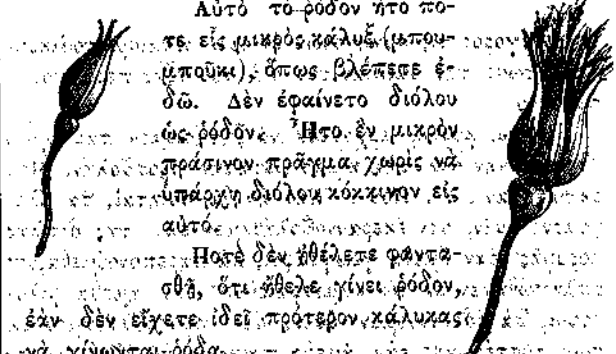 Αὐτὸ τὸ ῥόδον ἦτο πο-
τε εἷς μικρὸς κάλυξ (μπου-
μποῦκι), ὅπως βλέπετε ἐ-
δῶ. Δὲν ἐφαίνετο διόλου
ὡς ῥόδον. Ἦτο ἓν μικρὸν
πράσινον πρᾶγμα χωρὶς νὰ
ὑπάρχῃ διόλου κόκκινον εἰς
αὐτό.
Ποτὲ δὲν ἠθέλετε φαντα-
σθῆ, ὅτι ἤθελε γίνει ῥόδον,
ἐὰν δὲν εἴχετε ἰδεῖ πρότερον κάλυκας
νὰ γίνωνται ῥόδα